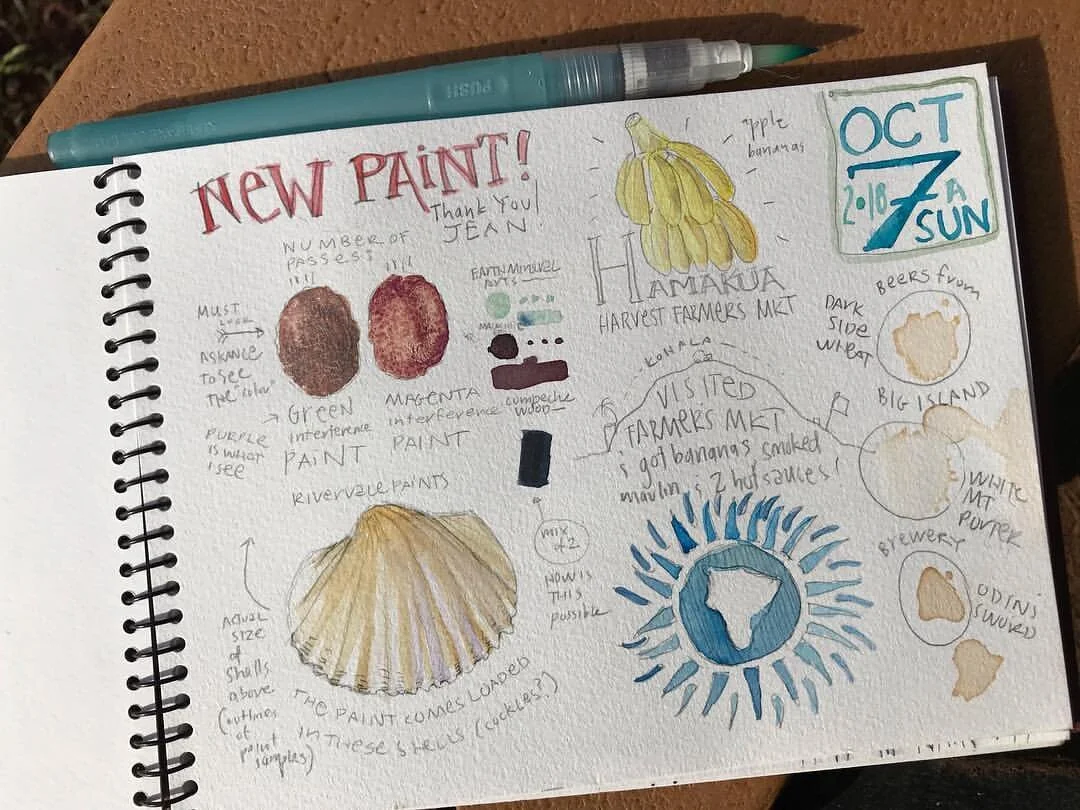 PUSH
NEW PAiNT!
Thank You
JEAN!
NUMBER OF
PASSES:
MUST
LOOK
ASKANCE
to see
THE "color"
PURPLE
is what
i see
GREEN
interference
PAiNT
MAGENTA
interference
PAiNT
EARTH Mineral
MALACHITE
campeche
wood
RiverVale PAiNTS
mix
of 2
HOW iS
THiS
possible
ACTUAL
SiZE
of
Shells
above
(outlines
of
paint
samples)
THE PAiNT COMES LOADED
in THESE SHELLS (cockles?)
apple
bananas
HAMAKUA
HARVEST FARMERS MKT
KOHALA
ViSiTED
FARMERS MKT
i got bananas smoked
marlin & 2 hot sauces!
OCT
7
2018
A
SUN
BEERS from
DARK
SiDE
WHEAT
BiG iSLAND
WHiTE
MT
PORTER
BREWERY
ODiNS
SWORD